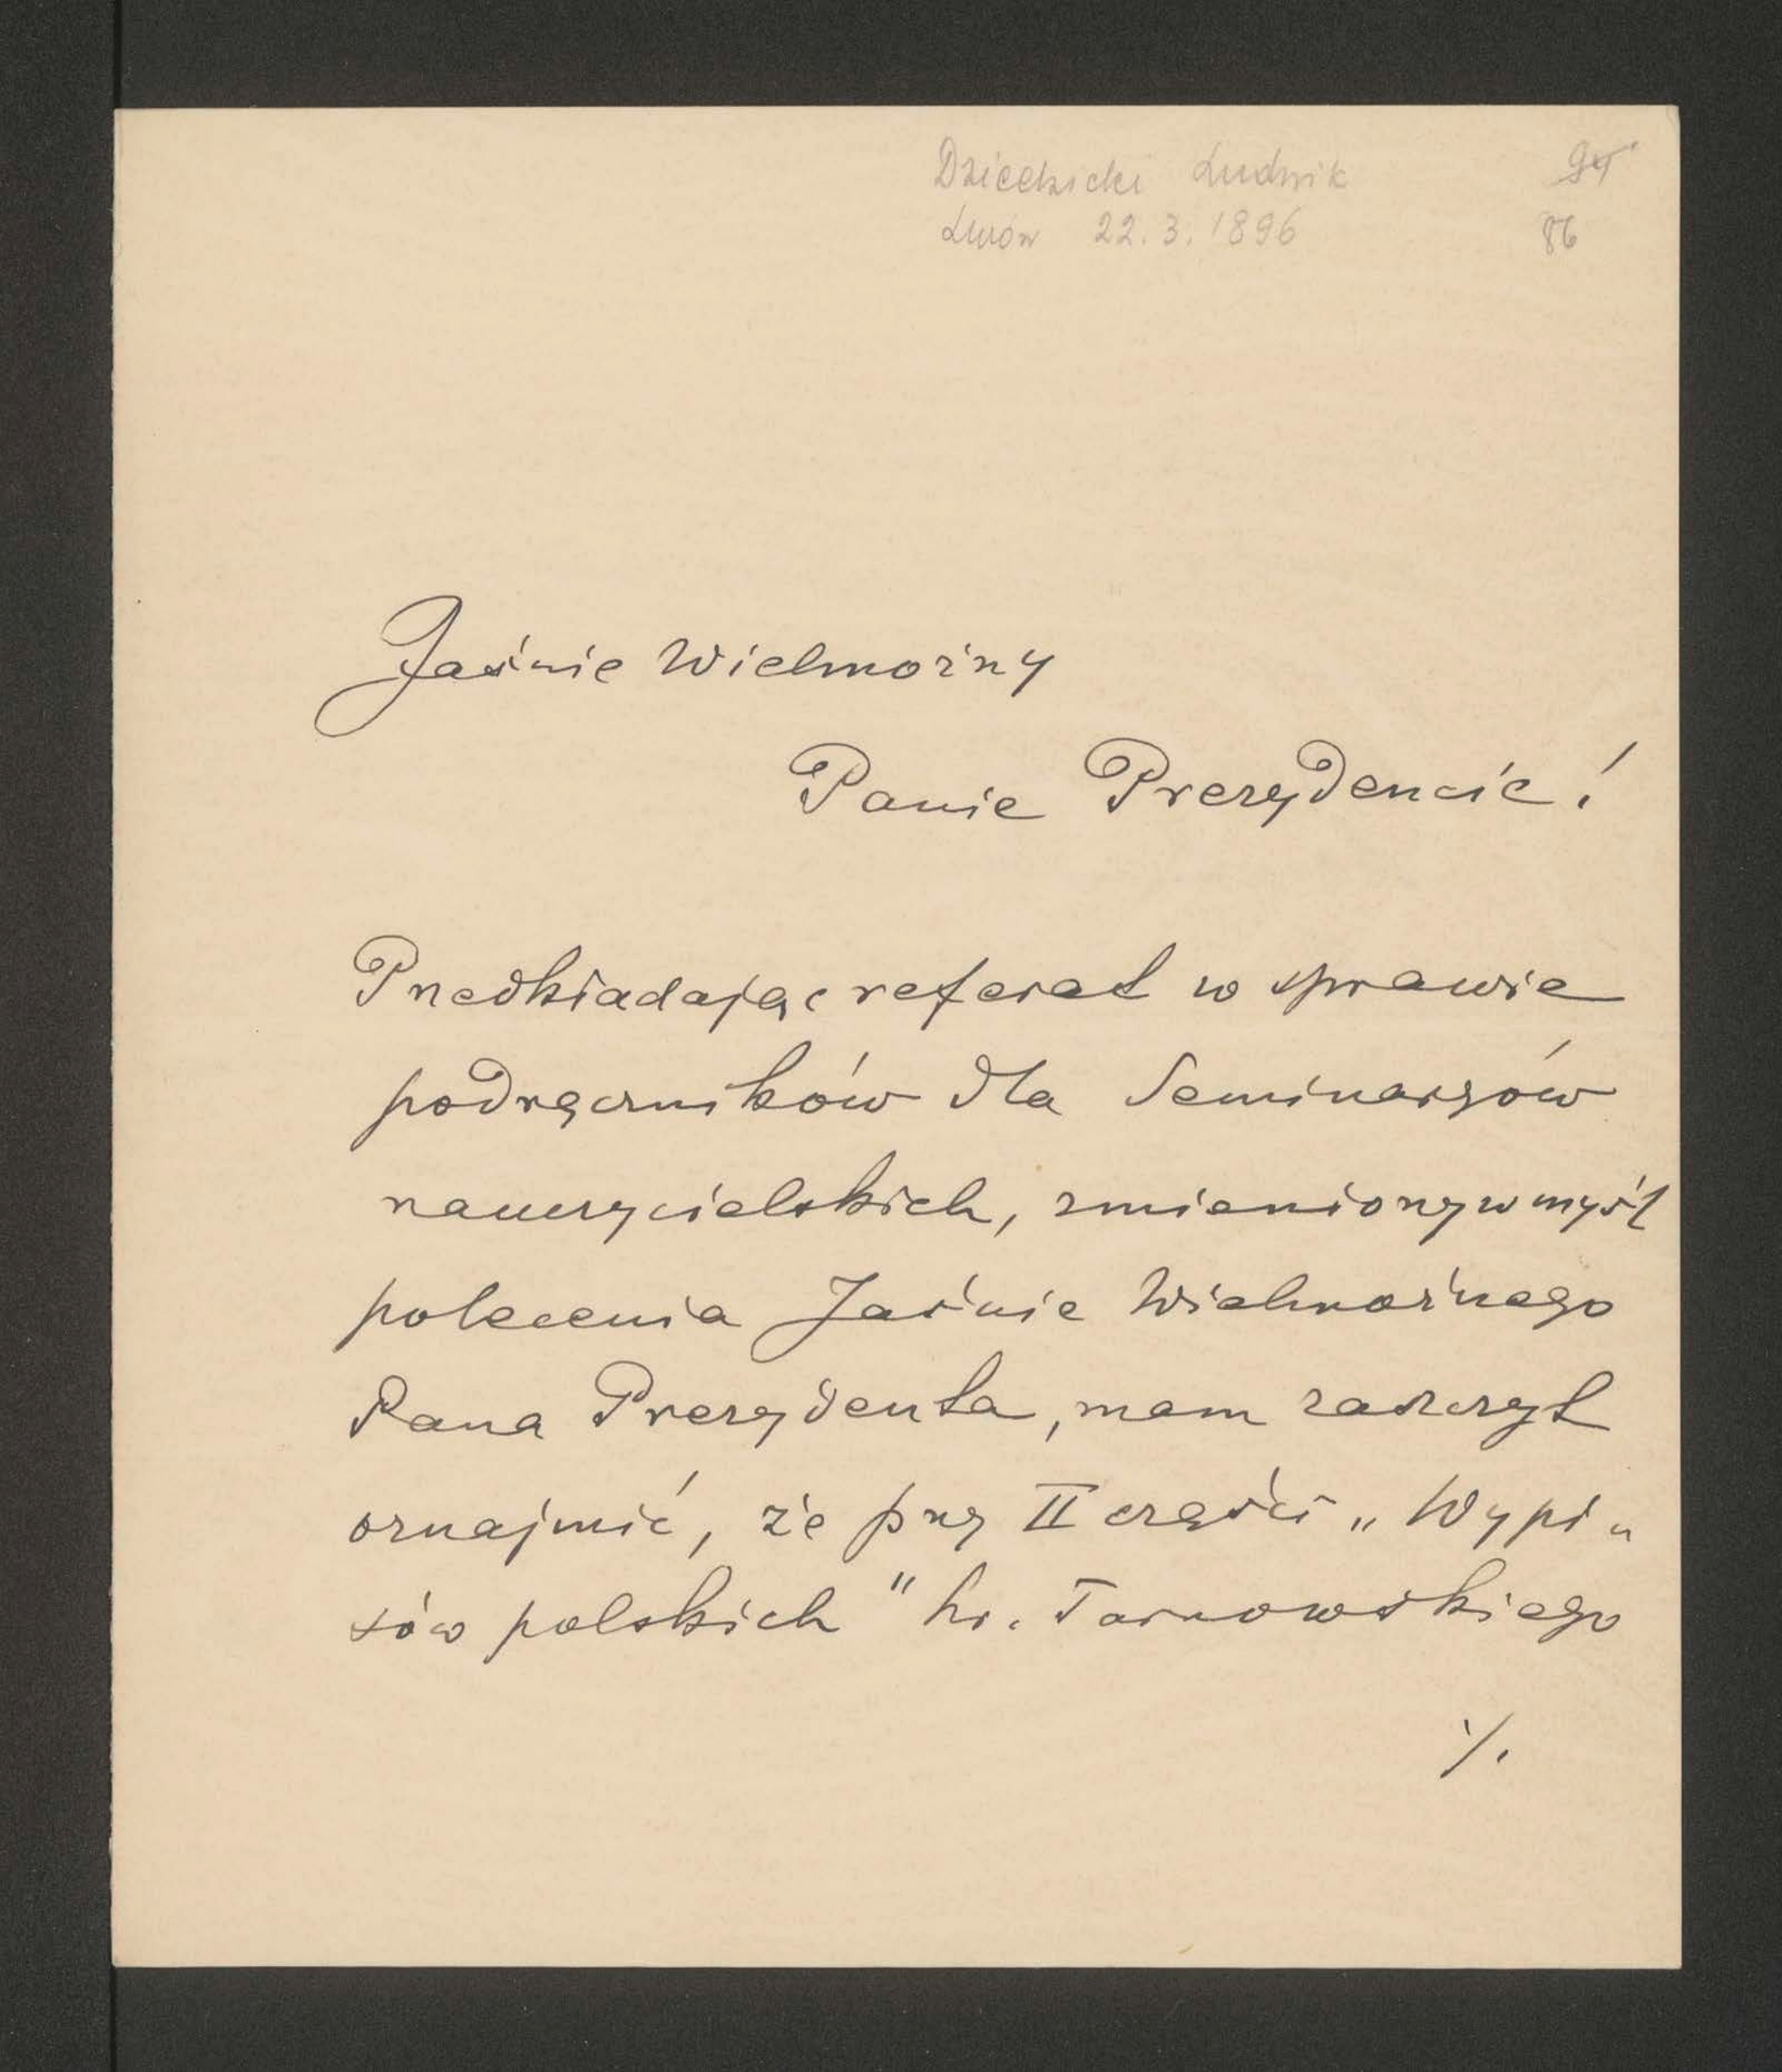 Dziedzicki Ludwik
Lwów 22.3.1896
86
Jaśnie Wielmożny
Panie Prezydencie!
Przedkładając referat w sprawie
podręczników dla Seminarzów
nauczycielskich, zmieniony w myśl
polecenia Jaśnie Wielmożnego
Pana Prezydenta, mam zaszczyt
oznajmić, że przy II części „Wypi„
sów polskich" hr. Tarnowskiego
./.